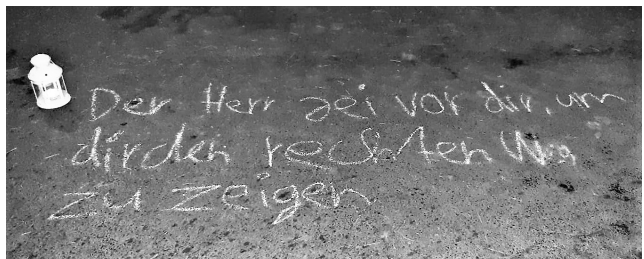 Der Herr sei vor dir, um
dir den rechten Weg
zu zeigen